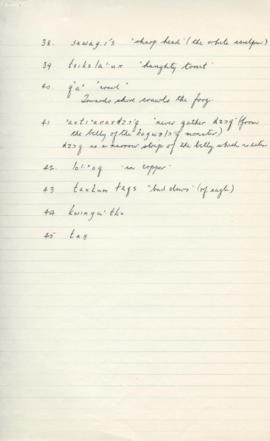 38. sawag.i's 'sharp head' (the white sculpin)
39 tsiksla'un 'haughty trout'
40. g'a' 'crawl'
Towards shore crawls the frog
41 'never gather dzɔg (from
the belly of the monster)
dzɔg is a narrow strip of the belly which
42. lo!'og 'in copper'
43 taxtum tags "bad claws" (of eagle)
44 kwingu'thu
45 tag